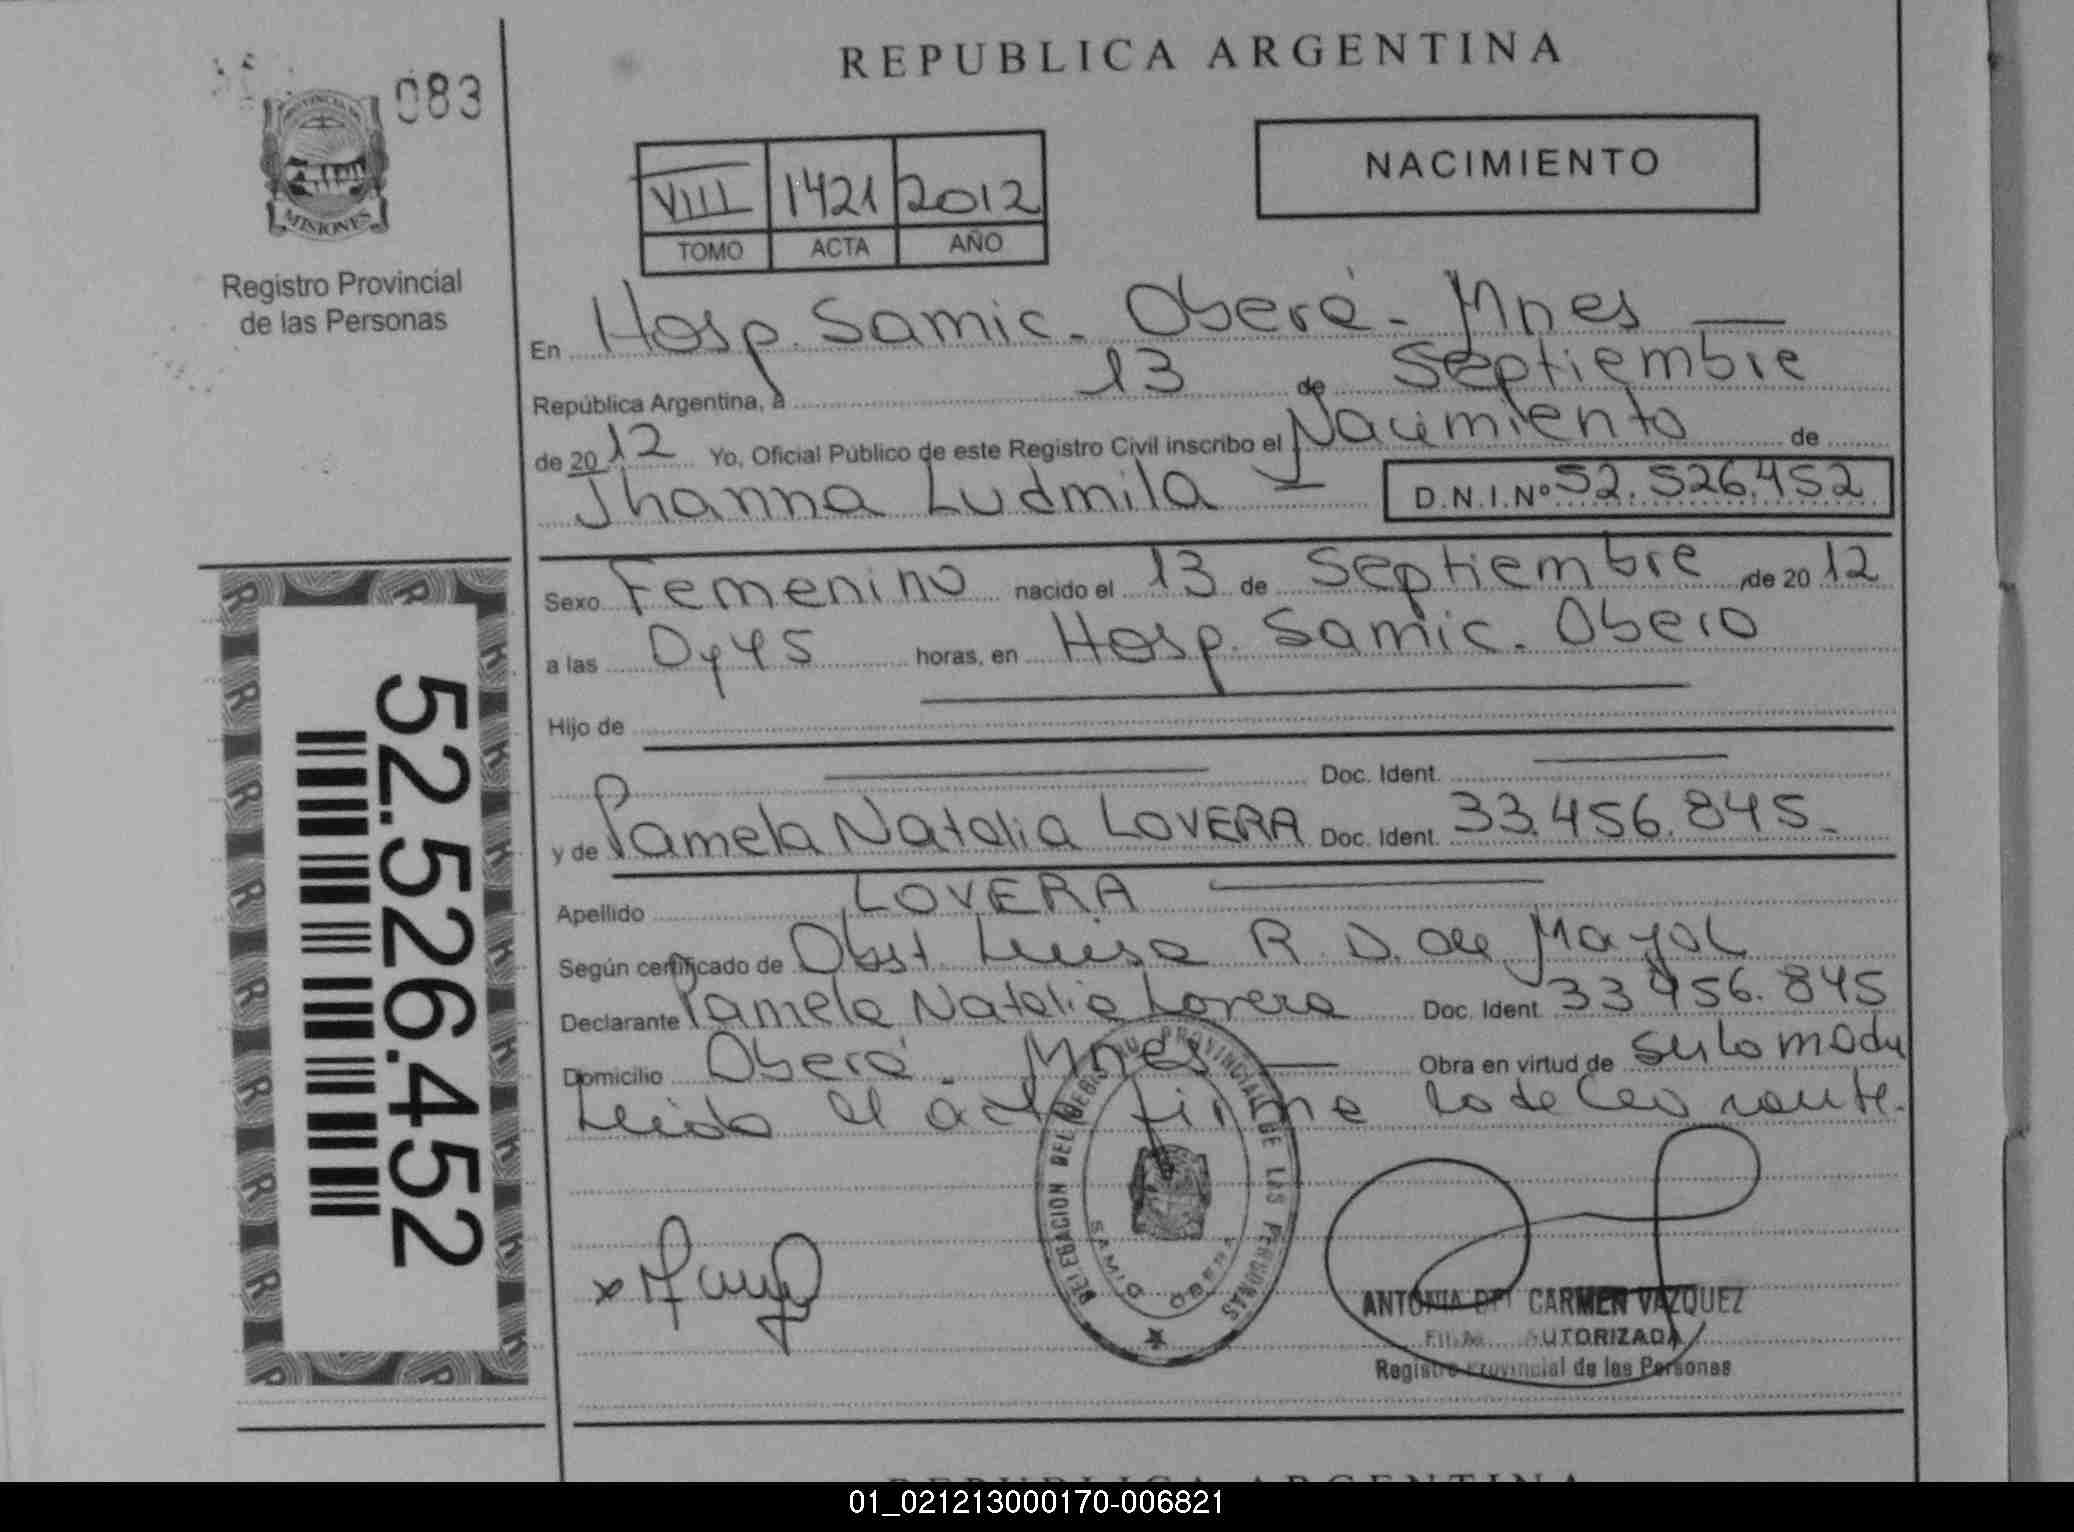 REPUBLICA ARGENTINA
083
MISIONES
Registro Provincial
de las Personas
VIII 1421 2012
TOMO ACTA AÑO
NACIMIENTO
En Hosp. Samic. Oberá - Mnes
República Argentina, a 13 de Septiembre
de 2012 Yo, Oficial Público de este Registro Civil inscribo el Nacimiento de
Jhanna Ludmila D.N.I.Nº 52.526.452
Sexo Femenino nacido el 13 de Septiembre de 2012
a las 0y45 horas, en Hosp. Samic. Obera
Hijo de
Doc. Ident.
y de Pamela Natalia LOVERA Doc. Ident. 33.456.845-
Apellido LOVERA
Según certificado de Obst. Luisa R. D. de Mayol
Declarante Pamela Natalia Lovera Doc. Ident. 33 456.845
Domicilio Oberá - Mnes Obra en virtud de
Leida el acta firma
52.526.452
DELEGACION DEL REGISTRO PROVINCIAL DE LAS PERSONAS
SAMIC OBERA
ANTONIA DEL CARMEN VAZQUEZ
AUTORIZADA
Registro Provincial de las Personas
REPUBLICA ARGENTINA
01_021213000170-006821